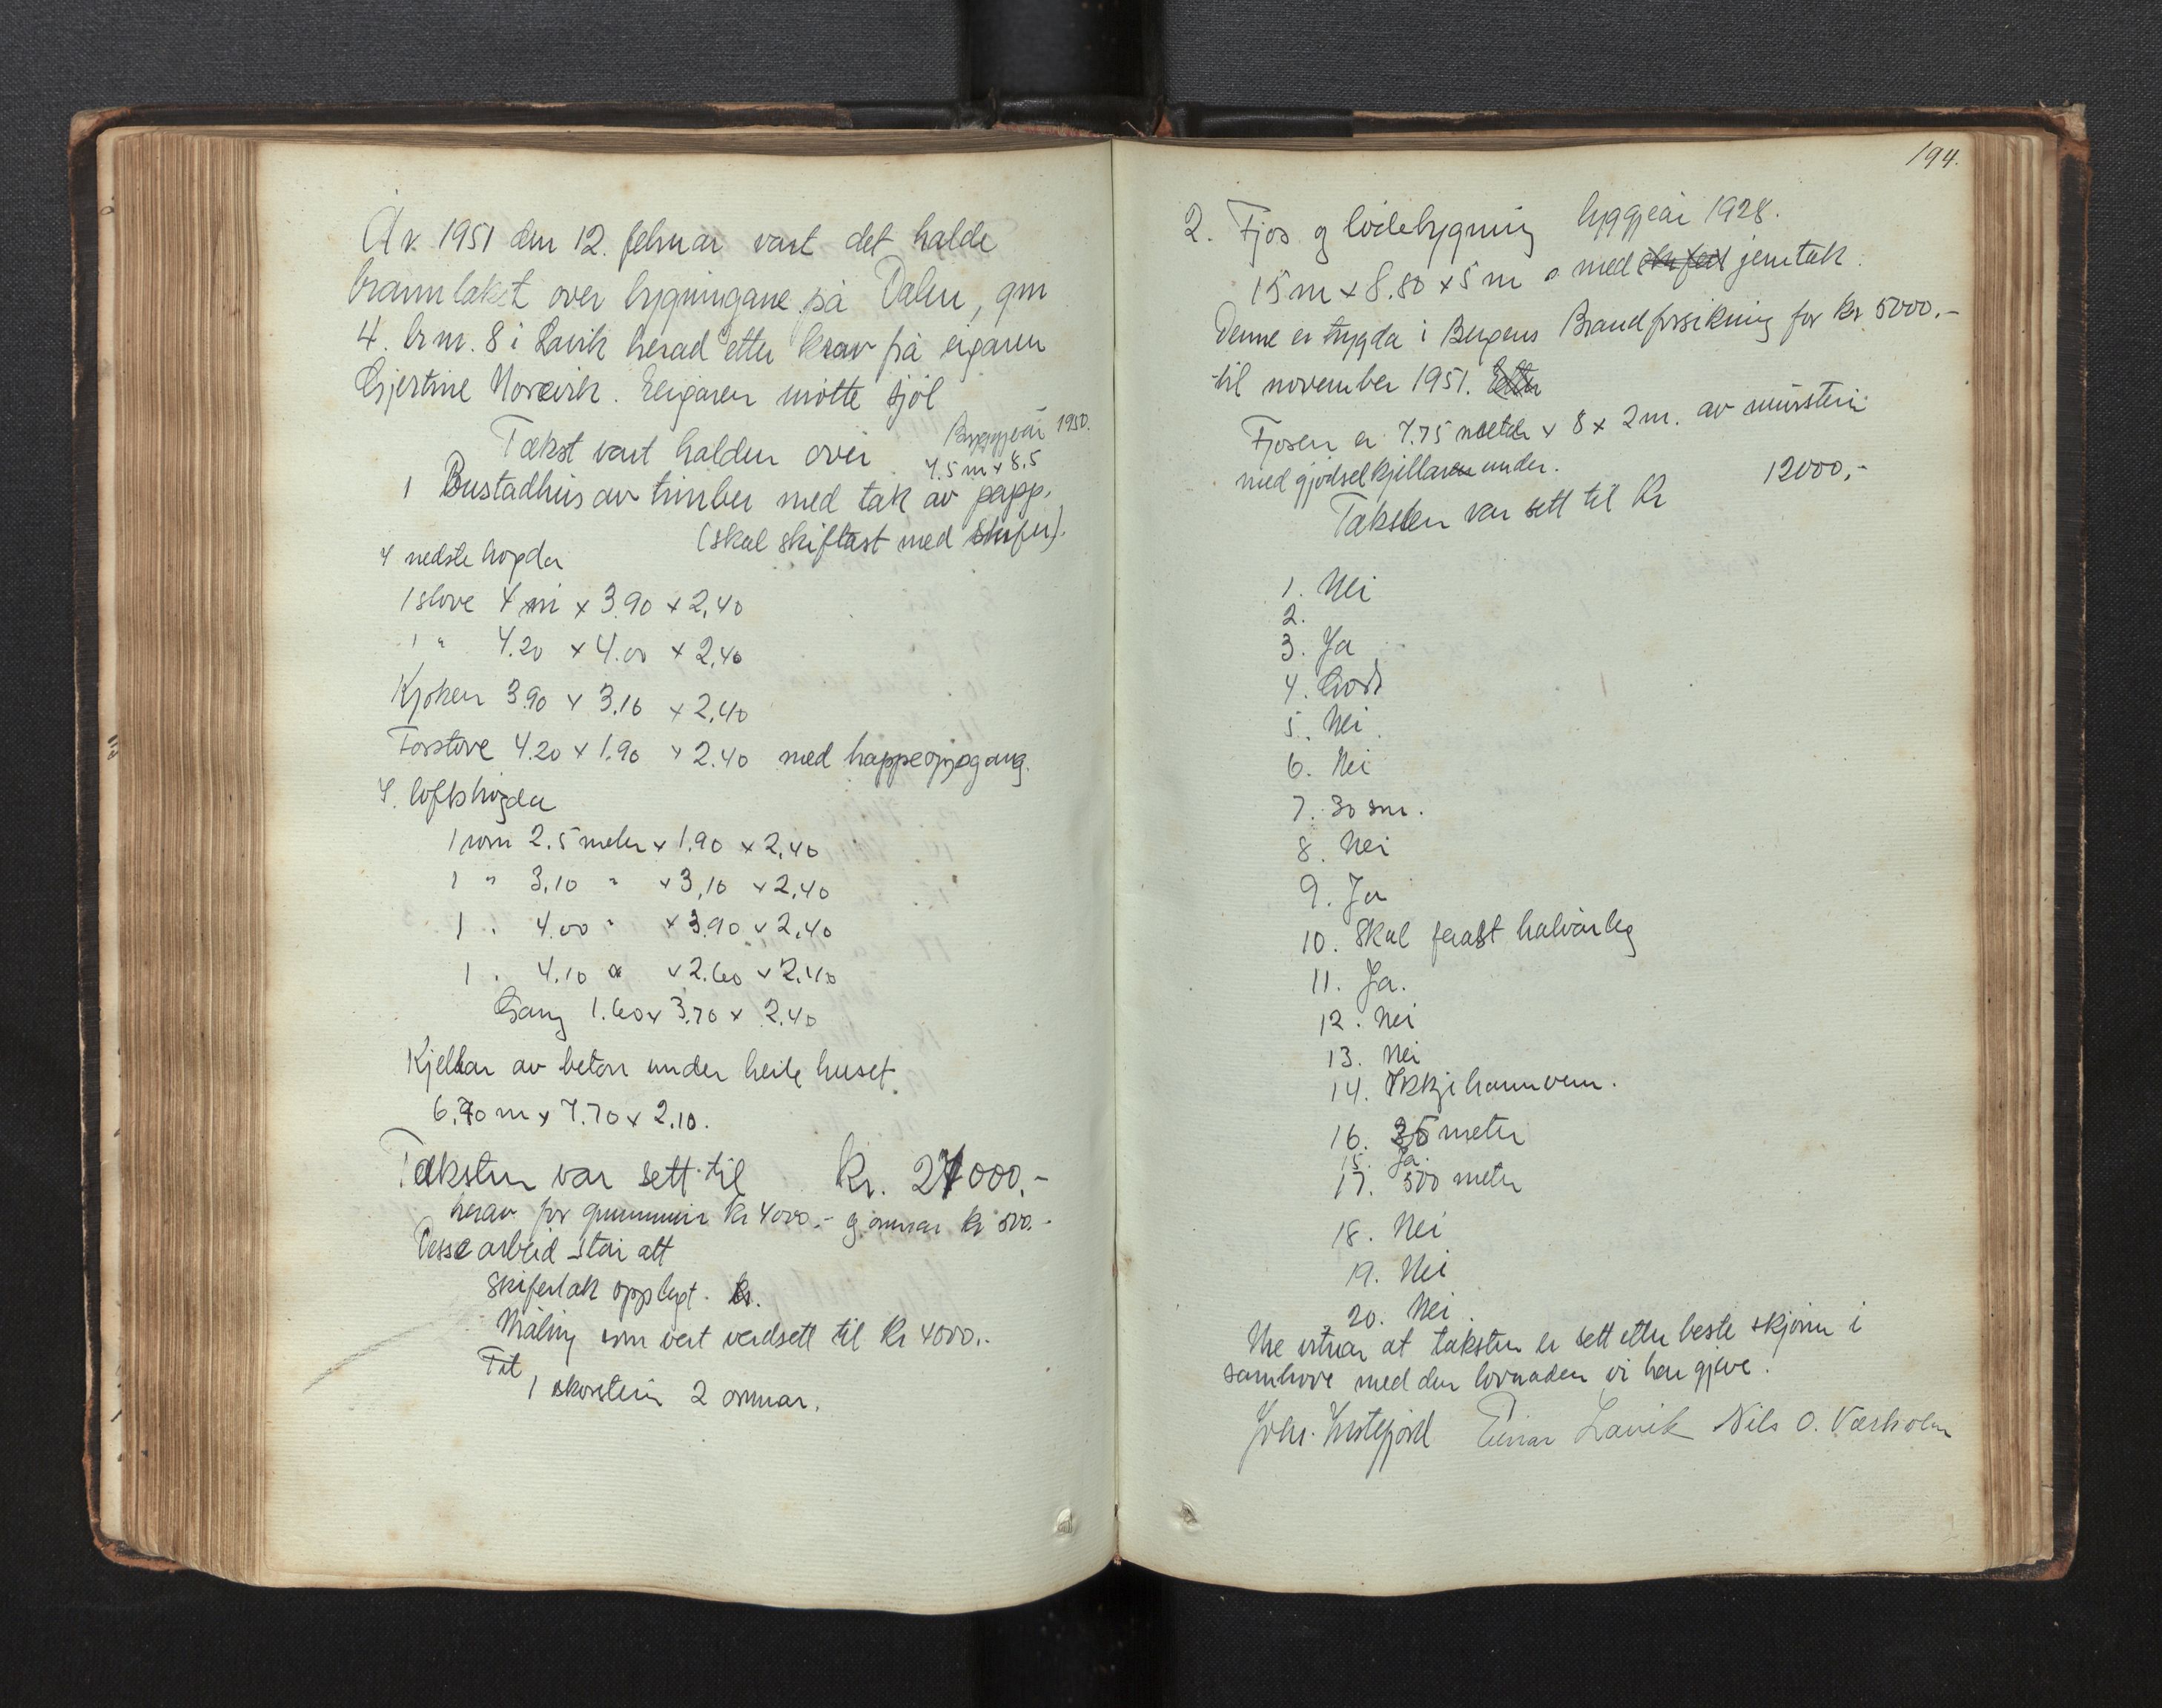 År 1951 den 12. februar vart det halde
branntakst over bygningane på Dalen, gnr
4. br nr. 8 i Lavik herad etter krav frå eigaren
Gjertine Norevik. Eigaren møtte sjøl
Takst vart halden over Byggjeår 1950.
7.5 m x 8.5
1 Bustadhus av timber med tak av papp.
(skal skiftast med skifer).
I nedste høgda
1 stove 4 m x 3.90 x 2,40
1 " 4.20 x 4.00 x 2,40
Kjøken 3.90 x 3.10 x 2,40
Forstove 4.20 x 1.90 x 2.40 med trappeoppgang.
I. loftshøgda
1 rom 2.5 meter x 1.90 x 2,40
1 " 3,10 " x 3,10 x 2,40
1 " 4.00 " x 3.90 x 2,40
1 " 4.10 " x 2.60 x 2,40
Gang 1.60 x 3.70 x 2.40
Kjellar av beton under heile huset
6.70 m x 7.70 x 2.10.
Taksten var sett til kr. 27000.-
herav for grunnmur kr 4000.- og omnar kr 500.-
Desse arbeid står att
Skifertak opplagt. kr.
Måling som vert verdsett til kr 4000.-
Til
1 skorstein 2 omnar.
194.
2. Fjos og lødebygning byggjeår 1928.
15 m x 8.80 x 5 m med skifer jerntak.
Denne er trygda i Bergens Brandforsikring for kr 5000.-
til november 1951. Etter
Fjosen er 7.75 meter x 8 x 2 m. av murstein
med gjødselkjellar under.
Taksten var sett til Kr 12000,-
1. Nei
2.
3. Ja
4. Godt
5. Nei
6. Nei
7. 30 sm.
8. Nei
9. Ja
10. Skal feiast halvårleg
11. Ja.
12. Nei
13. Nei
14. Ikkje brannvern.
16. 35 meter
15. Ja.
17. 500 meter
18. Nei
19. Nei
20. Nei.
Me vitnar at taksten er sett etter beste skjønn i
samhøve med den lovnaden vi har gjeve.
Einar Lavik Nils O. Værholm